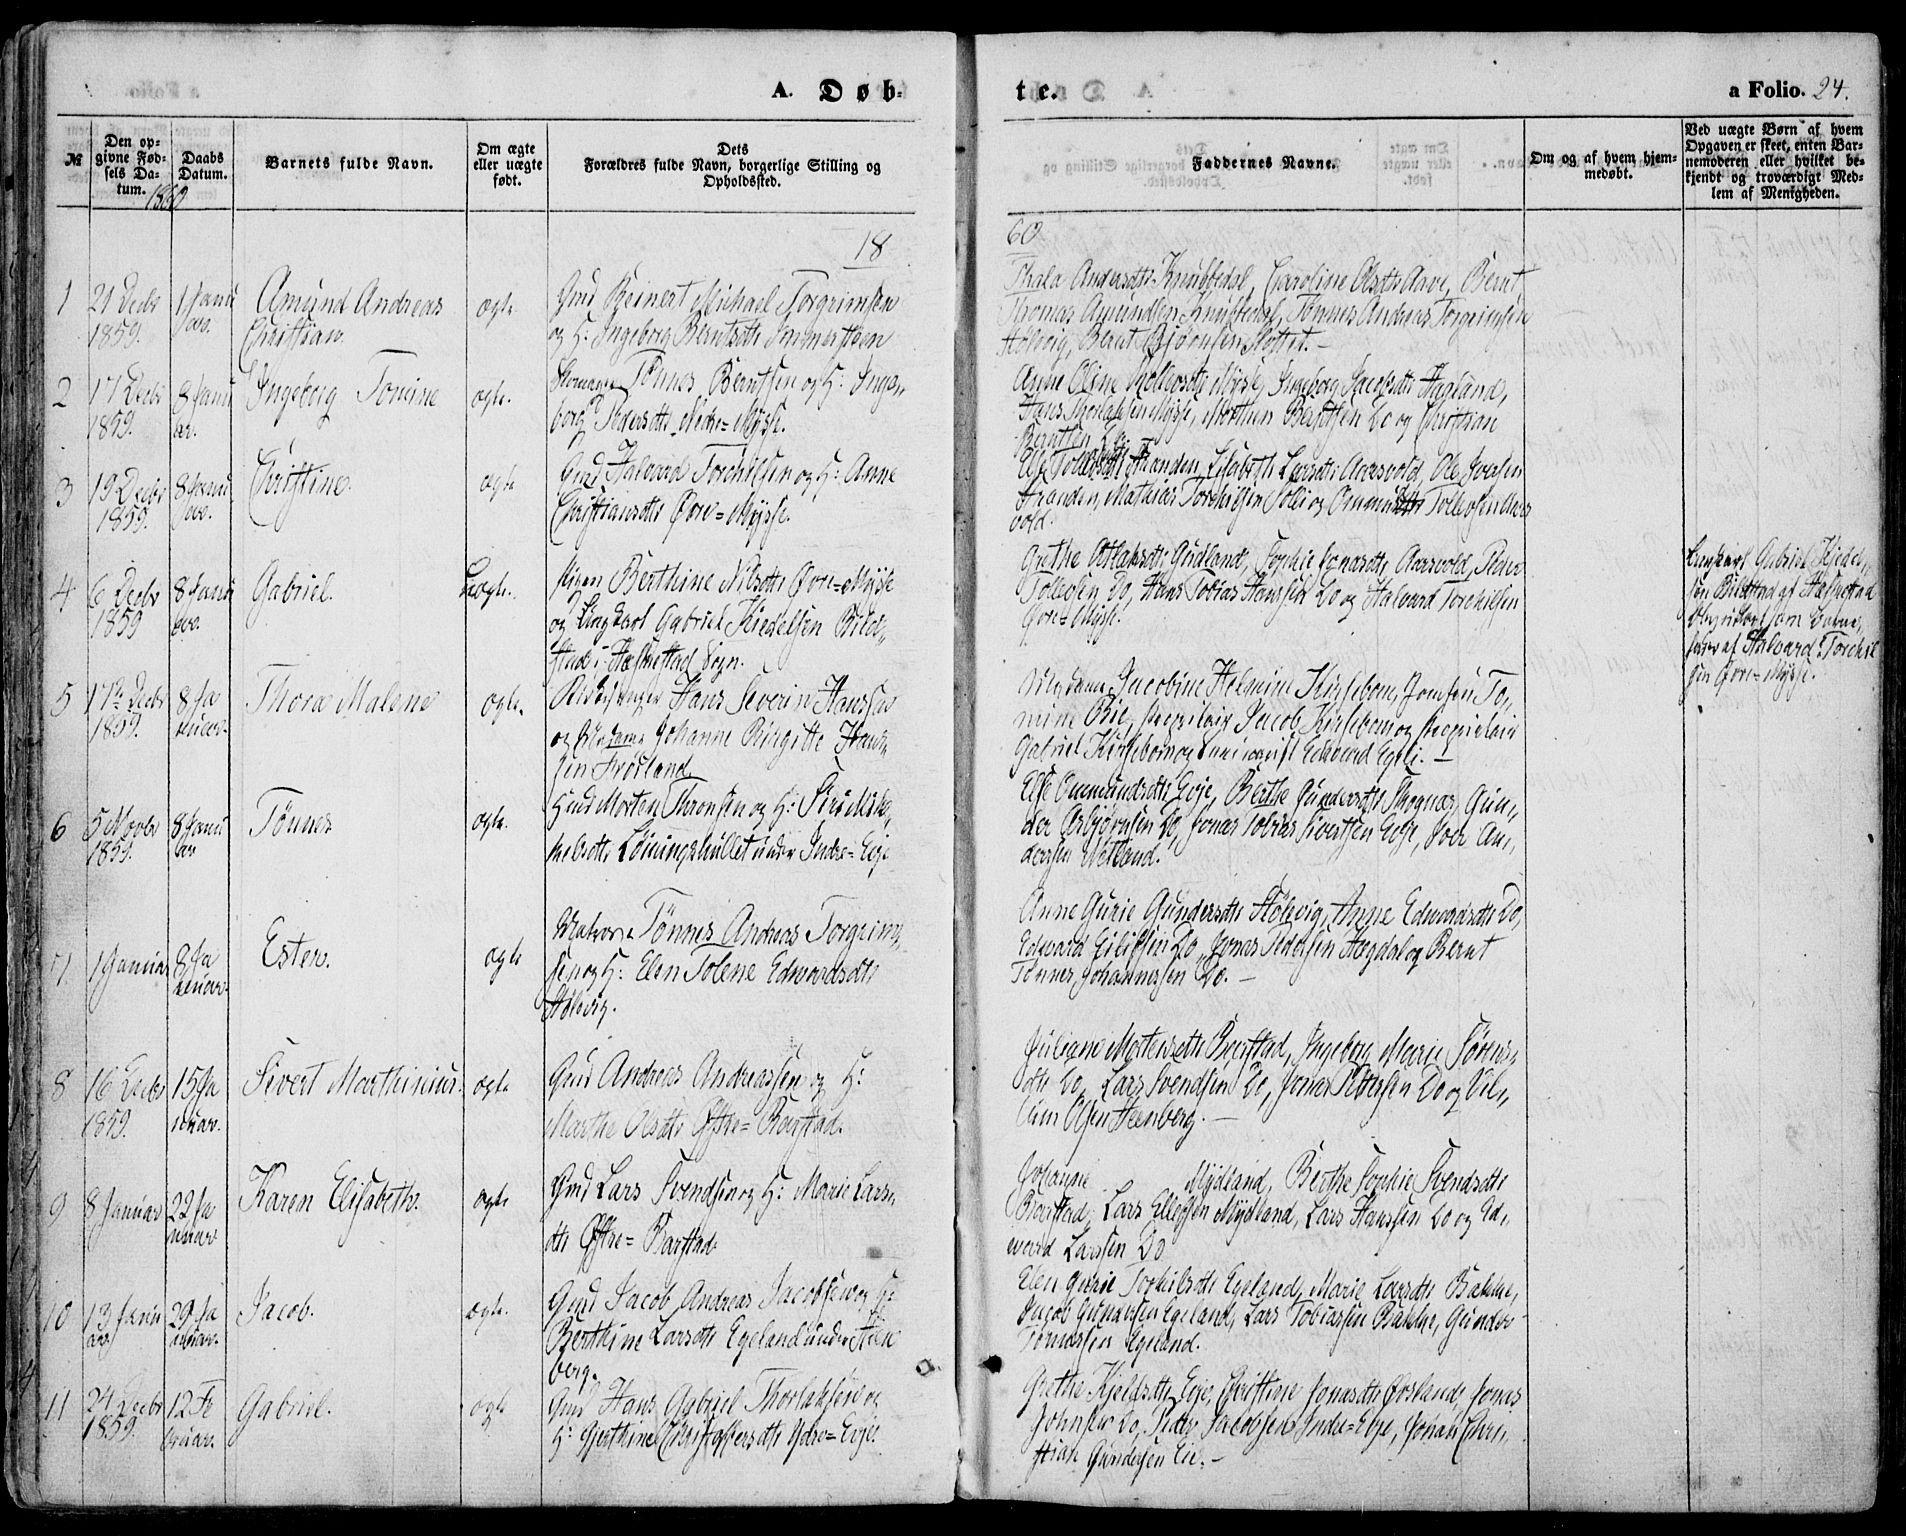 A. Døb-
te.
a Folio. 24.
№
Den op-
givne Fød-
sels Da-
tum.
1860
Daabs
Datum.
Barnets fulde Navn.
Om ægte
eller uægte
født.
Dets
Forældres fulde Navn, borgerlige Stilling og
Opholdssted.
Faddernes Navne.
Om og af hvem hjem-
medøbt.
Ved uægte Børn af hvem
Opgaven er skeet, enten Bar-
nemoderen eller hvilket be-
kjendt og troværdigt Med-
lem af Menigheden.
18
60
1
21 Decbr
1859.
1 Janu
Amund Andreas
Christian.
ægte
Gmd Reinert Michael Torgrimsen
og H: Ingeborg Berntsdtr
Andersdtr Knubbedal, Caroline Olsdtr Aave, Bernt
Thomas Amundsen Knubbedal, Tønnes Andreas Torgrimsen
Hølevig, Bernt Bjørnsen Slottet.-
2
17 Decbr
1859.
8 Janu
ar.
Ingeborg Tomine
ægte.
Tønnes Berntsen og H: Inge,,
borg Pedersdtr Nedre=Mysse.
Anne Oline Mysse, Ingeborg Jacobsdtr Hegland,
Hans Thorlaksen Mysse, Berntsen Do og Christian
Berntsen Do.
3
19 Decbr
1859.
8 Janu
Christine.
ægte
Gmd Halvard Torchilsen og H: Anne
Christiansdtr Øvre=Mysse.
Stranden, Elisabeth Larsdtr Aarsvold, Ole
Stranden, Mathias Torchilsen og Tollevsen Aars
vold.
4
6 Decbr
1859
8 Janu
Gabriel.
Uægte.
Pigen Berthine Nilsdtr Øvre=Mysse
og Ungkarl Gabriel Kiedelsen Bild,,
stad i Hæskestad Sogn.
Grethe Aslaksdtr Gudland, Sophie Jonasdtr Aarsvold, Peder
Tollefsen Do, Hans Tobias Hanssen Do og Halvard Torchilsen
Øvre=Mysse.
Ungkarl Gabriel Kiedel,,
sen Bildstad af Hæskestad
som Barne,,
fader af Halvard Torchil
sen Øvre=Mysse.
5
17de Decbr
1859.
8 Ja
nuar.
Thora Malene
ægte.
Hans Severin Hanssen
og Madame Johanne Birgitte Hans,,
sen Frøsland
Madame Jacobine Helmine Kirsebom, Jomfru To,,
mine Bie, Proprietair Jacob Kirsebom og Proprietair
Gabriel Kirsebom og Edvard Egeli.-
6
5 Novbr
1859.
8 Janu
ar
Tønnes
ægte.
Huusmd Morten Thronsen og H: Siri Mik,,
kelsdtr under Indre=Eeje
Else Ommundsdtr Eeje, Berthe Gundersdtr Skognæs, Gun,,
der Asbjørnsen Do, Jonas Tobias Sivertsen Eeje, Peder An,,
dersen Netland.
7
1 Januar
8 Ja
nuar.
Ester.
ægte
Matros Tønnes Andreas Torgrim,,
sen og H: Elen Tolene Edvardsdtr
Hølevig.
Anne Gurie Gundersdtr Hølevig, Anne Edvardsdtr Do,
Edvard Eiliksen Do, Jonas Pedersen Hægdal og Bernt
Tønnes Johannessen Do.-
8
16 Decbr
1859.
15 Ja
nuar.
Sivert Marthinius.
ægte
Gmd Andreas Andreassen og H:
Marthe Olsdtr Østre=Barstad.
Juliane Mortensdtr Barstad, Ingeborg Marie Sørens,,
dtr Do, Lars Svendsen Do, Jonas Pettersen Do og Vil,,
lum Olsen Steenberg.-
9
8 Januar
22 Ja
nuar
Karen Elisabeth.
ægte
Gmd Lars Svendsen og H: Marie Lars,,
dtr Østre=Barstad.
Johanne Mydland, Berthe Sophie Svendsdtr
Barstad, Lars Ellefsen Mydland, Lars Hanssen Do og Ed,,
ward Larssen Do
10
13 Janu
ar
29 Ja
nuar.
Jacob.
ægte.
Gmd Jacob Andreas Jacobsen og H:
Berthine Larsdtr Egeland under Steen
berg.
Elen Gurie Torkilsdtr Egeland, Marie Larsdtr Bakke,
Jacob Gundersen Egeland, Lars Tobiassen Bakke, Gunder
Tønnessen Egeland.
11
24 Decbr
1859.
12 Fe
bruar.
Gabriel.
ægte
Gmd Hans Gabriel Thorlaksen og
H: Gjerthine Christophersdtr Indre=Eeje
Grethe Kjeldsdtr Eeje, Christine Jonasdtr Ørsland, Jonas
Johnsen Do, Peder Jacobsen Indre=Eeje, Johan Chri,,
stian Gundersen Eie.-